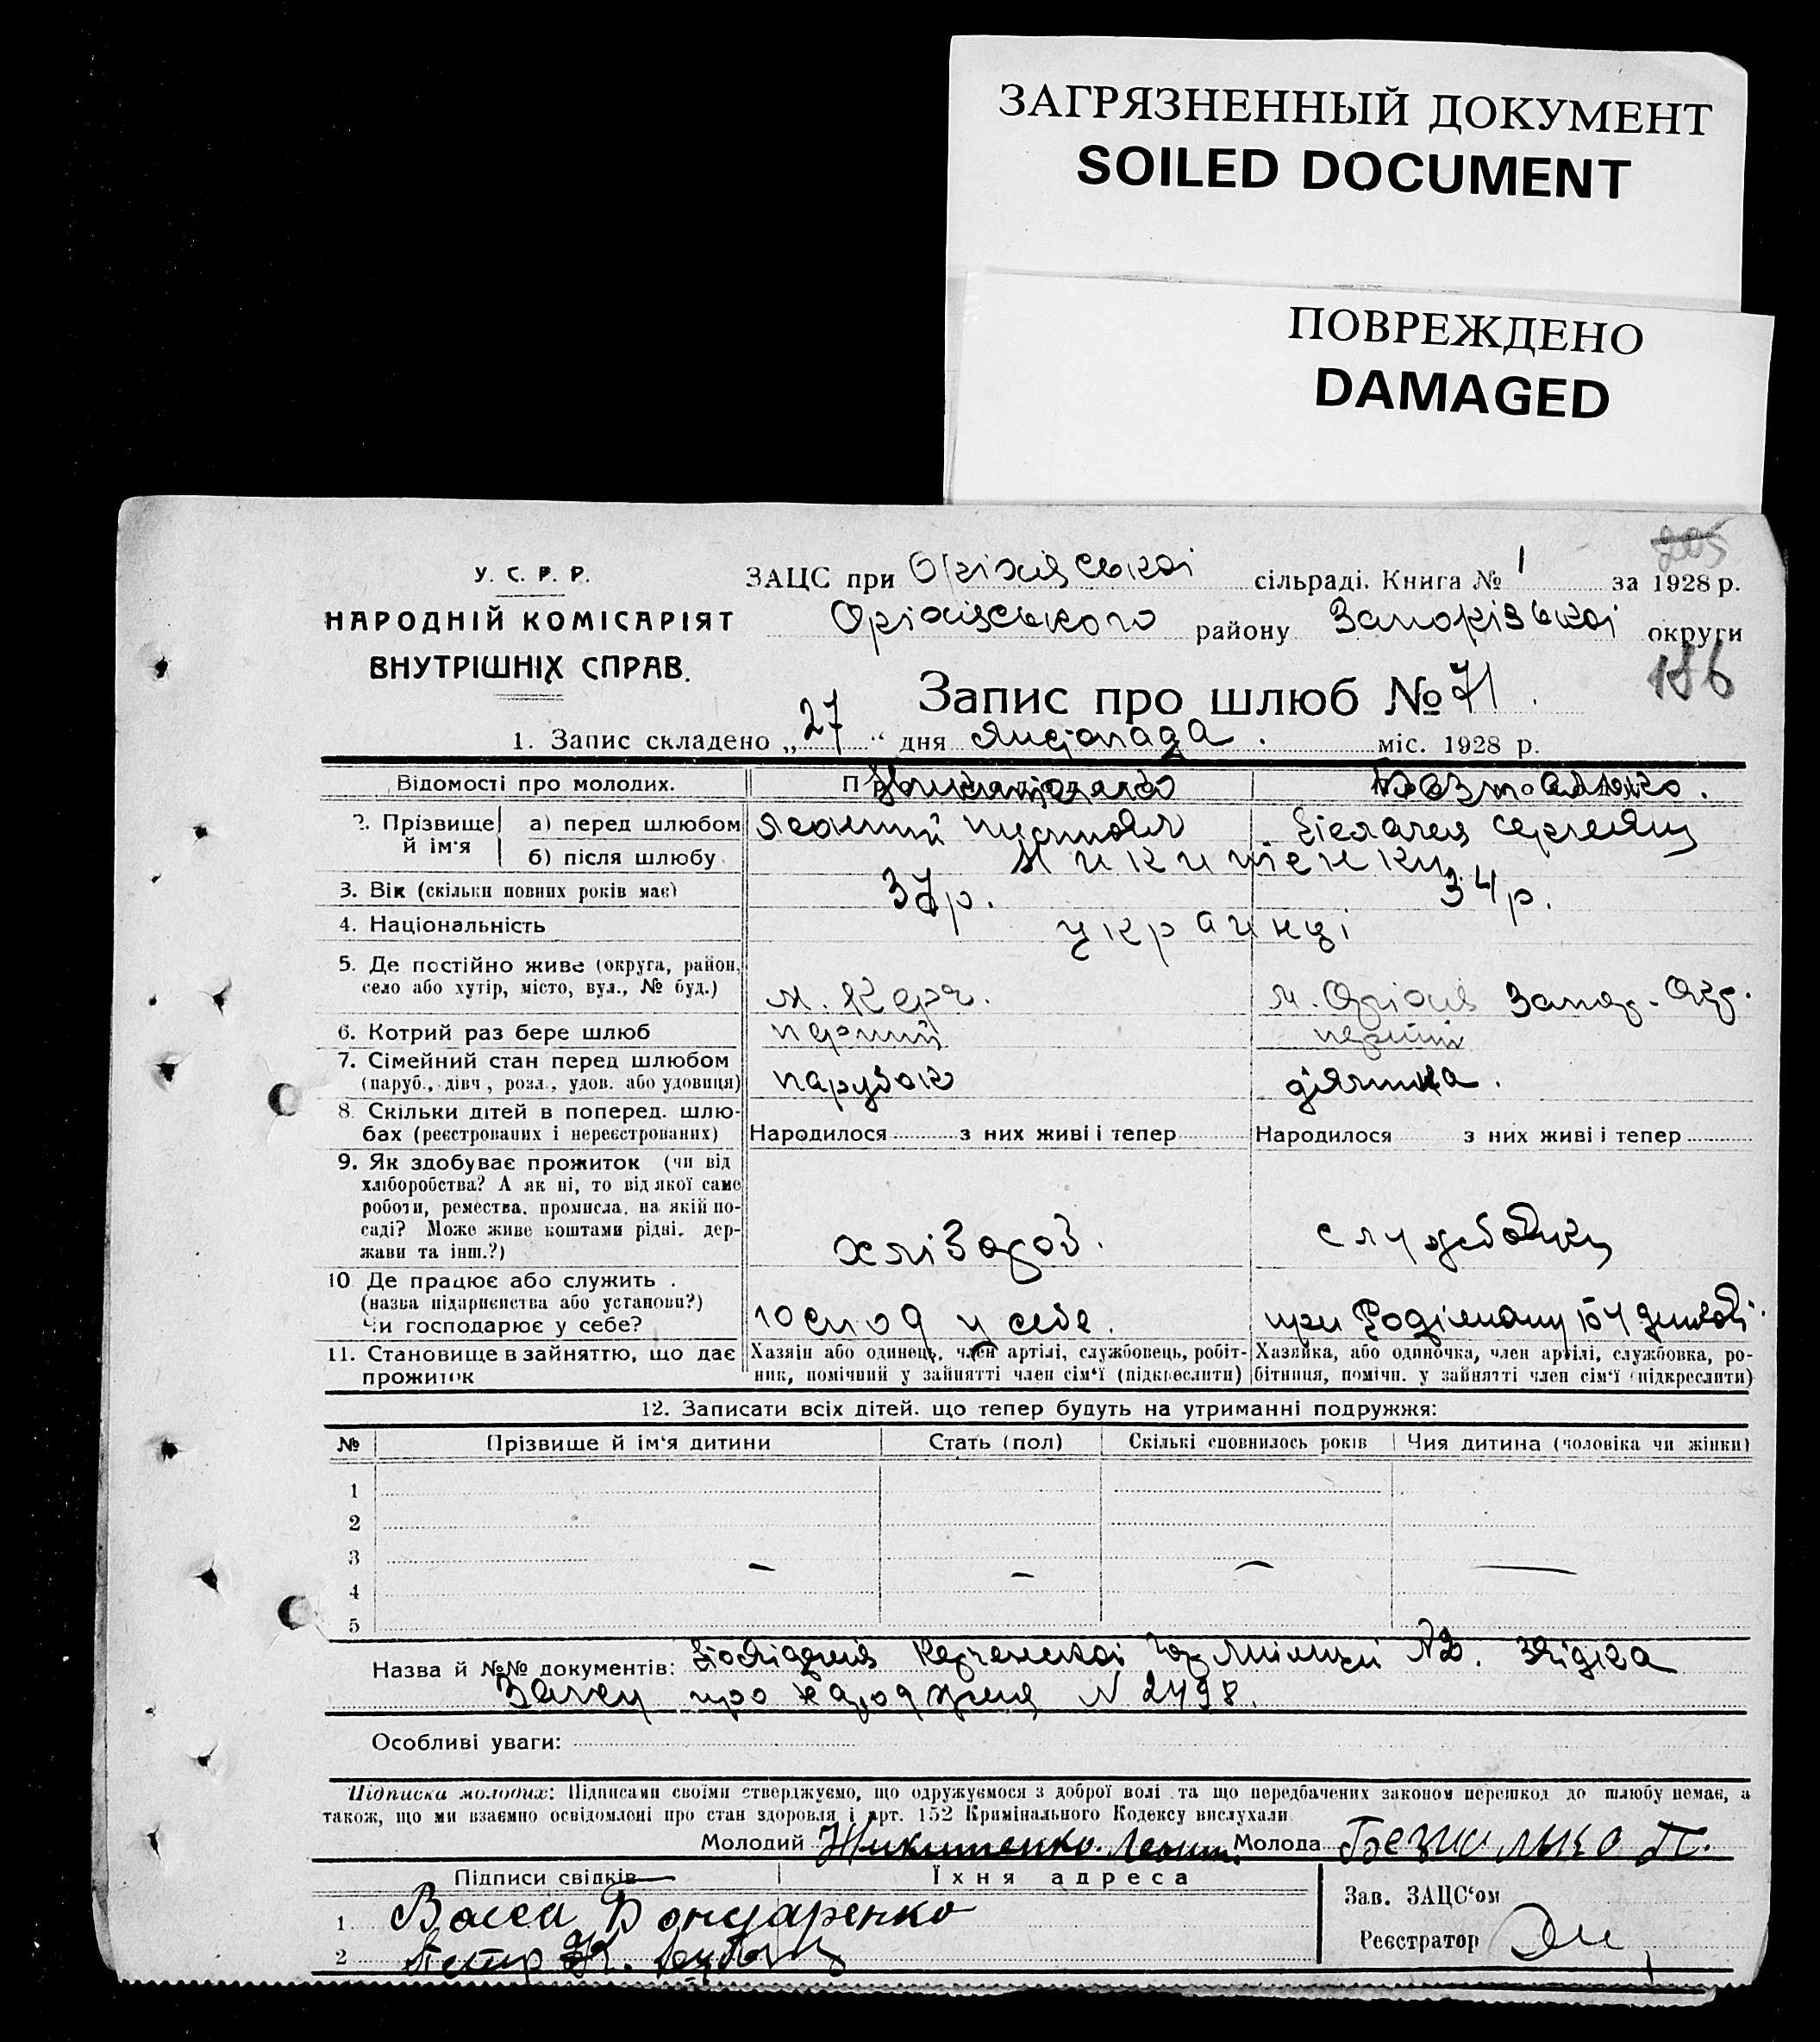 ЗАГРЯЗНЕННЫЙ ДОКУМЕНТ
SOILED DOCUMENT
ПОВРЕЖДЕНО
DAMAGED
205
У. С. Р. Р.
НАРОДНІЙ КОМІСАРІЯТ
ВНУТРІШНІХ СПРАВ.
ЗАЦС при Оріхівській сільраді. Книга № 1 за 1928 р.
Оріхівського району Запорізької округи
186
Запис про шлюб № 71.
1. Запис складено „27“ дня листопада. міс. 1928 р.
Відомості про молодих.
2. Прізвище й ім'я
а) перед шлюбом
б) після шлюбу
Микитенки
3. Вік (скільки повних років має) 37 р. 34 р.
4. Національність українці
5. Де постійно живе (округа, район, село або хутір, місто, вул., № буд.) м. Керч. м. Оріхів
6. Котрий раз бере шлюб перший перший
7. Сімейний стан перед шлюбом (паруб., дівч., розл., удов. або удовиця) парубок дівчина.
8. Скільки дітей в поперед. шлюбах (реєстрованих і нереєстрованих) Народилося з них живі і тепер Народилося з них живі і тепер
9. Як здобуває прожиток (чи від
хліборобства? А як ні, то від якої саме
роботи, ремества, промисла, на якій по-
саді? Може живе коштами рідні, дер-
жави та інш.?)
10. Де працює або служить.
(назва підприємства або установи?)
Чи господарює у себе? господ у себе. при
11. Становище в зайняттю, що дає прожиток
Хазяін або одинець, член артілі, службовець, робіт-
ник, помічний у зайнятті член сім'ї (підкреслити)
Хазяйка, або одиночка, член артілі, службовка, ро-
бітниця, помічн. у зайнятті член сім'ї (підкреслити)
12. Записати всіх дітей, що тепер будуть на утриманні подружжя:
№ Прізвище й ім'я дитини Стать (пол) Скількі сповнилось років Чия дитина (чоловіка чи жінки)
1
2
3
4
5
Назва й №№ документів:
про народження N 2498.
Особливі уваги:
Підписка молодих: Підписами своїми стверджуємо, що одружуємося з доброї волі та що передбачених законом перешкод до шлюбу немає, а
також, що ми взаємно освідомлені про стан здоровля і арт. 152 Кримінального Кодексу вислухали.
Молодий Никитенко Молода
Підписи свідків Їхня адреса
1 Васси Бондаренко
2 Петр
Зав. ЗАЦС'ом
Реєстратор